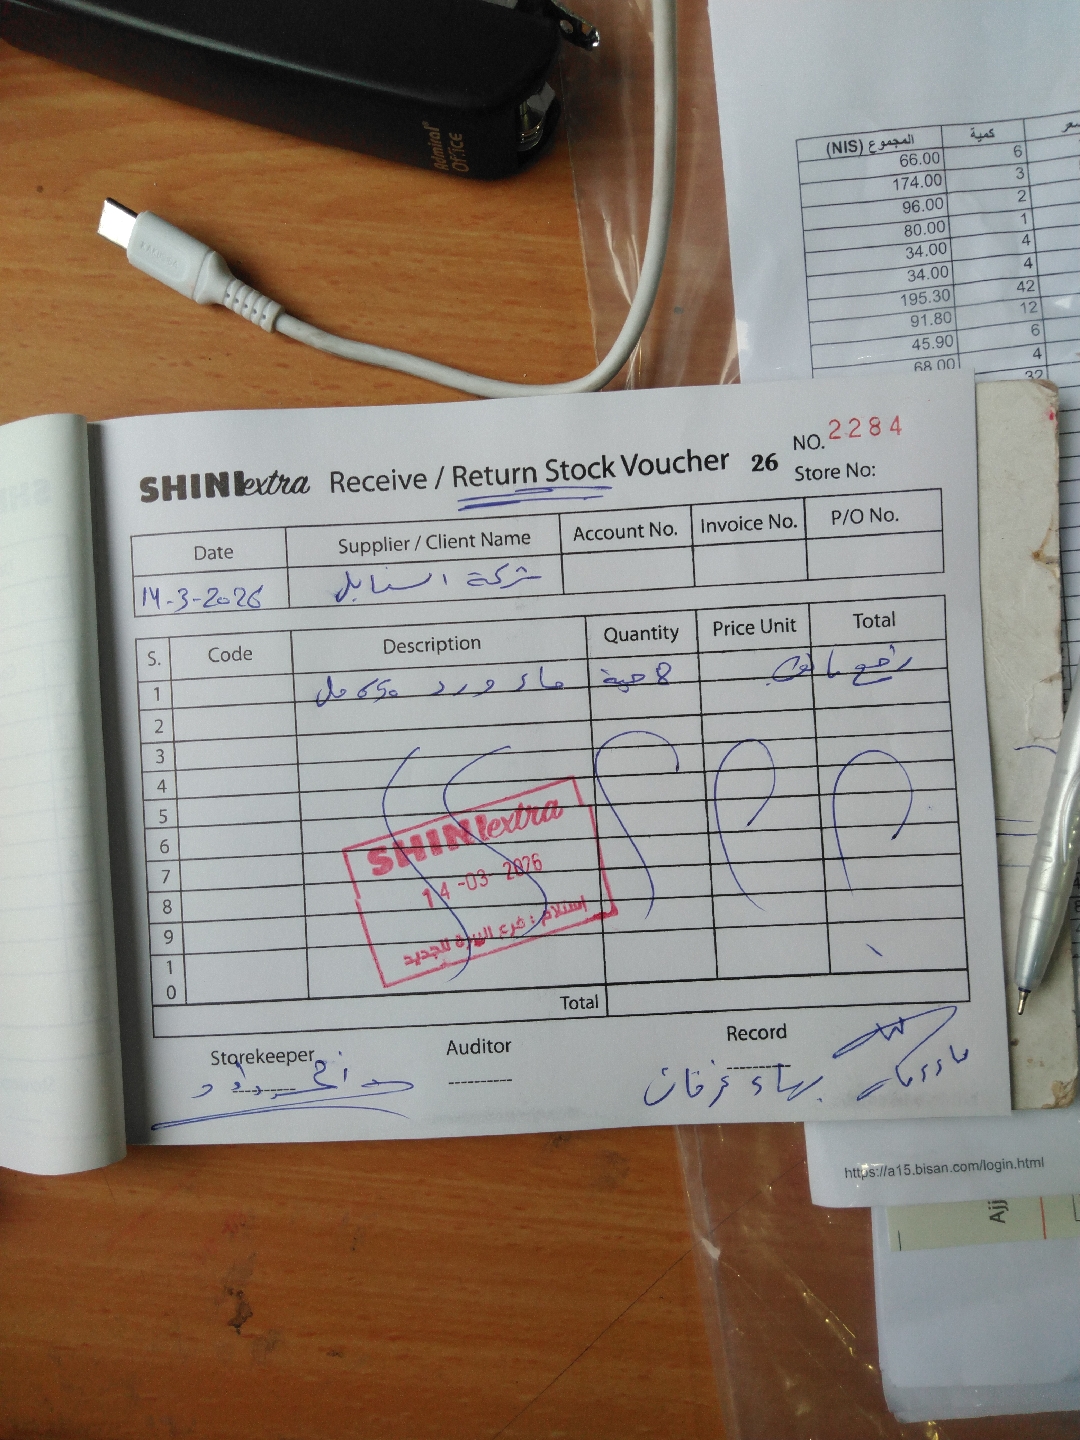 Admiral
Office
المجموع (NIS) كمية
66.00 6
174.00 3
96.00 2
80.00 1
34.00 4
34.00 4
195.30 42
91.80 12
45.90 6
68.00 4
32
SHINI extra Receive / Return Stock Voucher 26
NO. 2284
Store No:
Date Supplier / Client Name Account No. Invoice No. P/O No.
14-3-2026 شركة السنابل
S. Code Description Quantity Price Unit Total
1 ماء ورد 8 حبة
2
3
4
5
6
7
8
9
10
SHINI extra
14-03-2026
استلام : فرع
Total
Storekeeper Auditor Record
بهاء عرفات
https://a15.bisan.com/login.html
Ajj